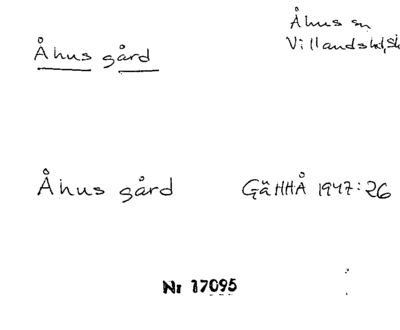 Åhus sn
Villands hd, Sk
Åhus gård
Åhus gård GäHHÅ 1947:26
Nr 17095